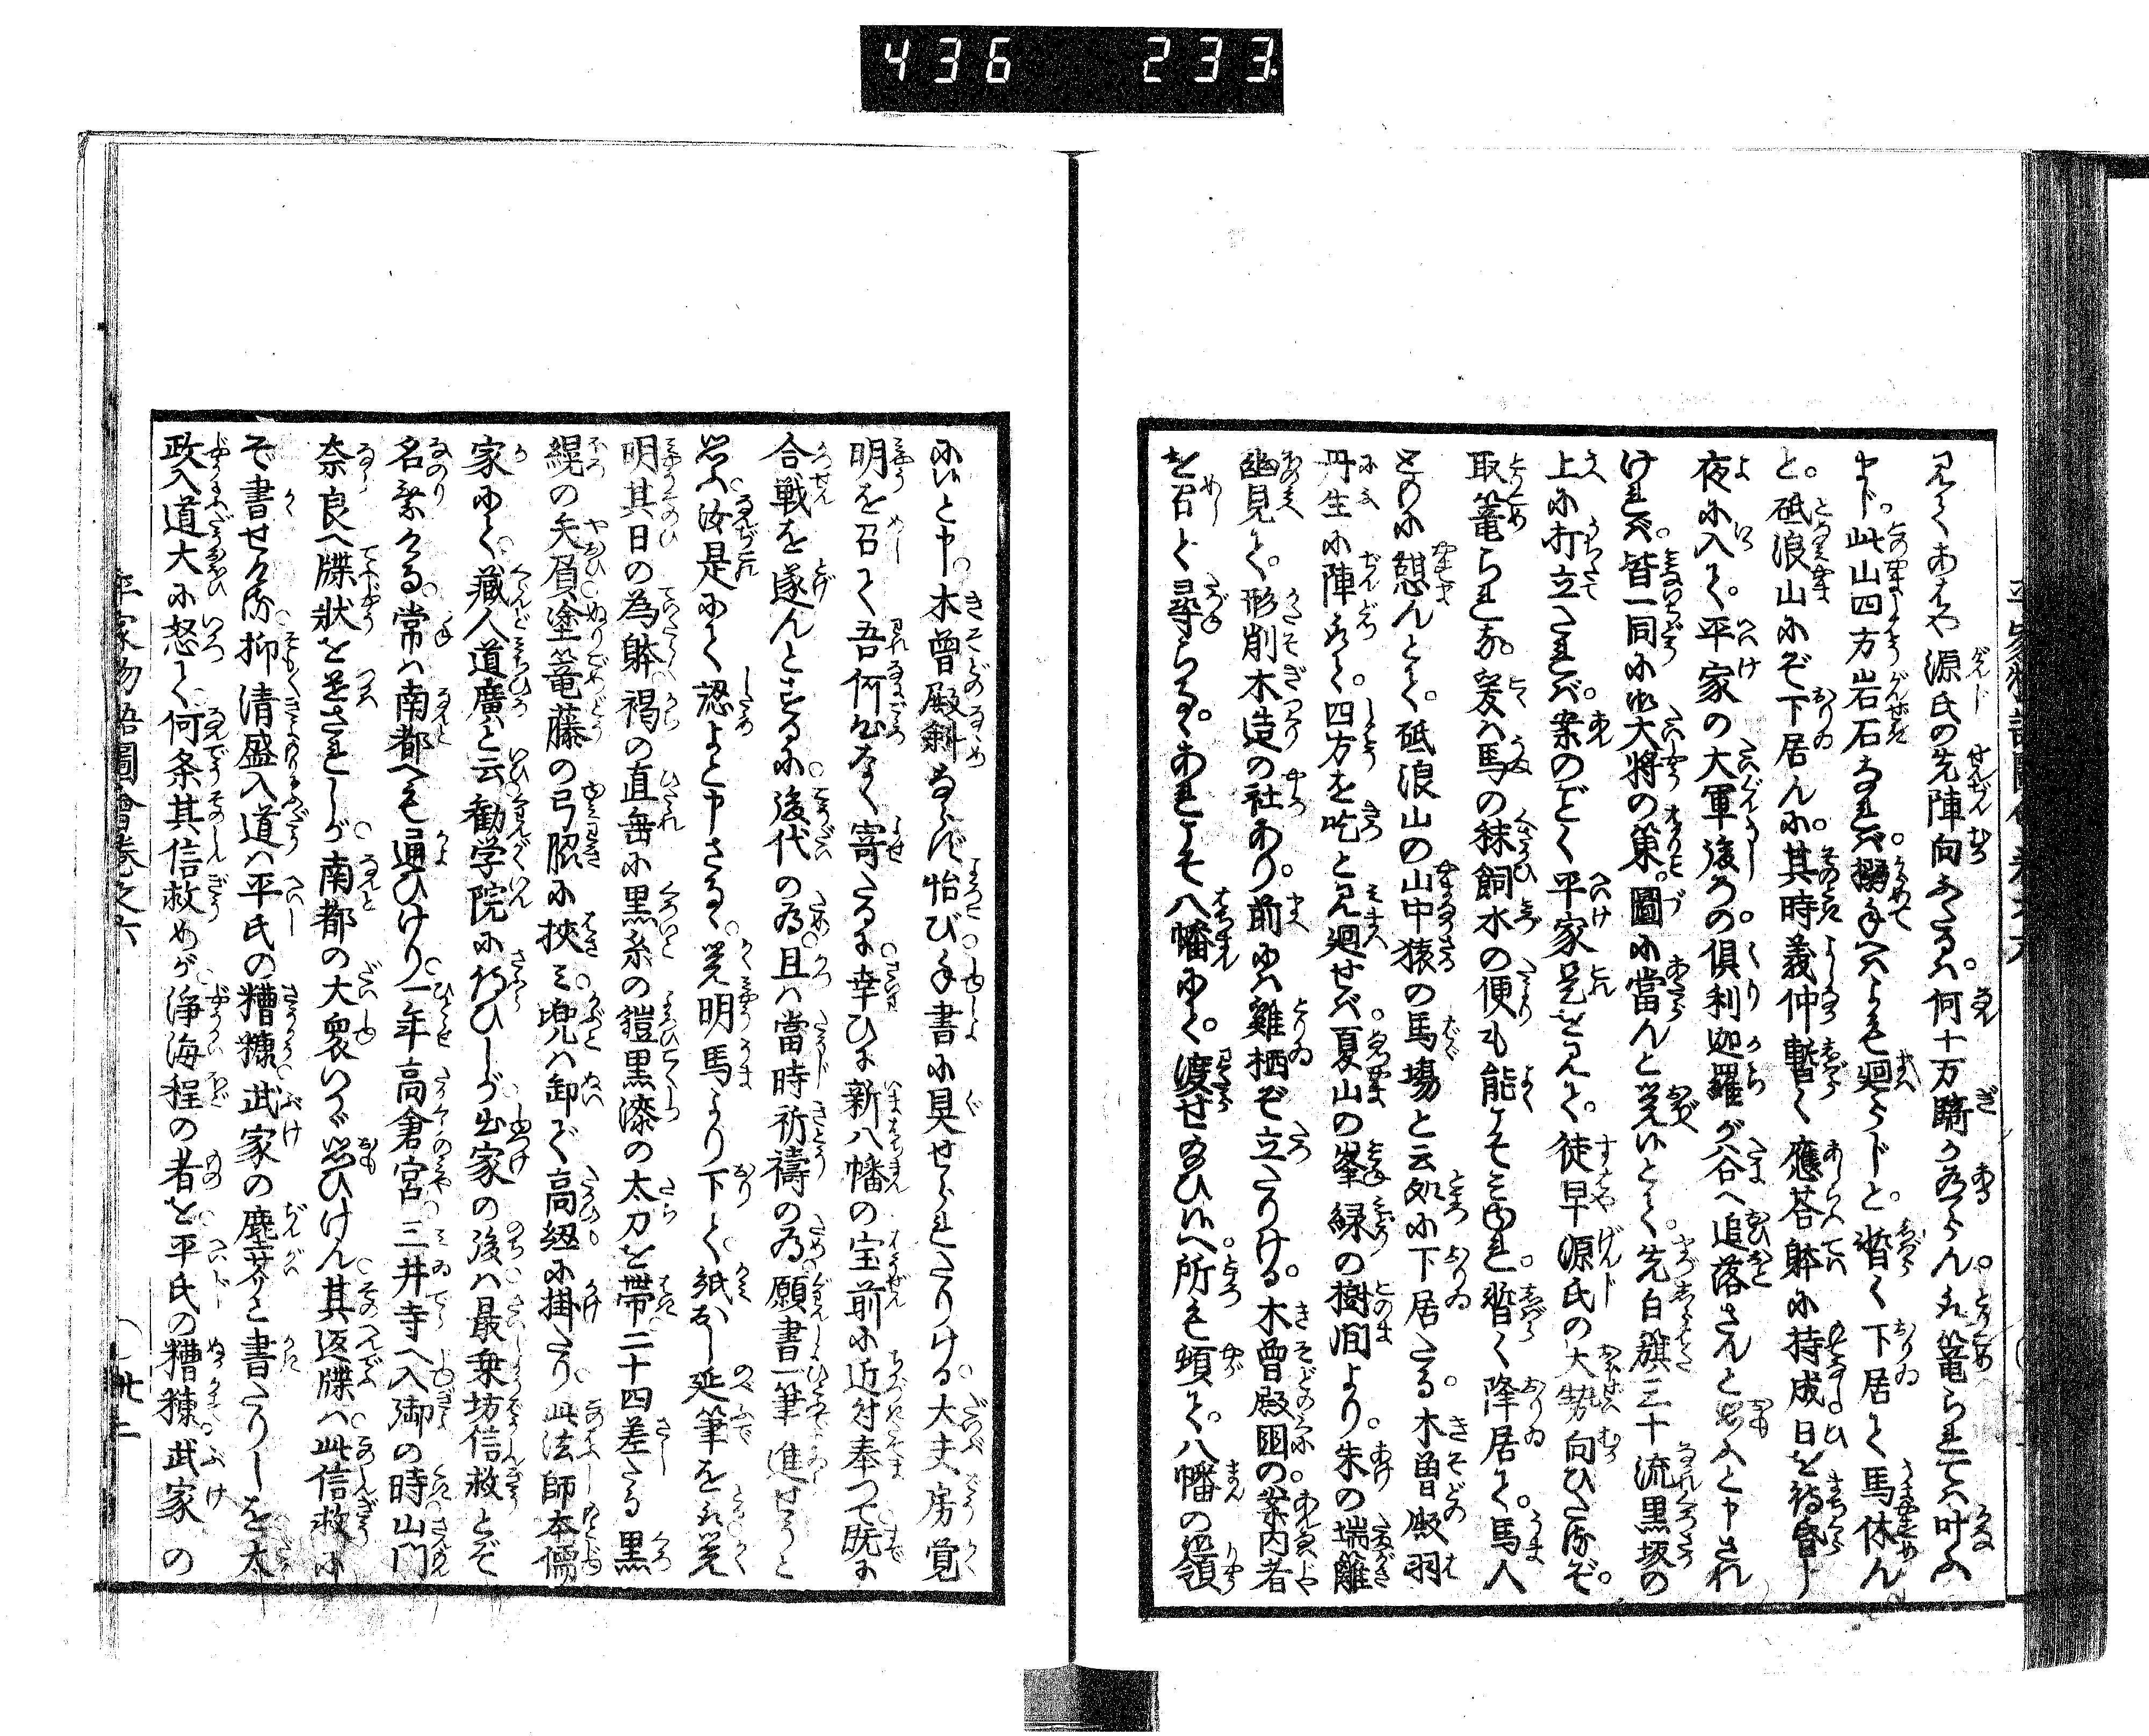 436 233
見てあはや源氏の先陣向ふたるは。何十万騎か有らん。取篭られては叶ふ
まじ。此山四方岩石なれば。搦手へはよも廻らじと。暫く下居て馬休ん
と。砥浪山にぞ下居ん。其時義仲暫く應荅躰に持成日を待昏し
夜に入て。平家の大軍後ろの倶利迦羅が谷へ追落さんと思ふと申され
ければ。皆一同に御大将の策。圖に當んと覚いとて。先白籏三十流黒坂の
上に打立たれば。案のごとく平家是を見て。徒早源氏の大勢向ひたるぞ。
取篭られな。爰は馬の秣飼水の便も能こそ御なれ。暫く降居て。馬人
ともに憩んとて。砥浪山の山中猿の馬塲と云処に下居たる。木曽殿羽
丹生に陣取て。四方を吃と見廻せば夏山の峯緑の樹間より。朱の瑞籬
幽見て。形削木造の社あり。前には雞栖ぞ立たりける。木曽殿囯の案内者
を召て尋らるゝ。あれこそ八幡にて。渡せ給ひ候へ。所も頓て。八幡の御領
に候と申。木曽殿斜ならず怡び。手書に具せられたりける。大夫房覚
明を召て吾何心なく寄たるに。幸ひに新八幡の宝前に近付奉つて既に
合戦を遂んとするに。後代の為。且は當時祈禱の為。願書一筆進せうと
思ふ。汝是にて認よと申さるゝ。覚明馬より下て。紙出し延筆を取。覚
明其日の為躰。褐の直垂に黒糸の鎧黒漆の太刀を帯二十四差たる黒
縨の矢屓塗篭藤の弓脇に挾み。兜は卸で高紐に掛たり。此法師本儒
家にて。蔵人道廣と云勧学院に候ひしが。出家の後は。最乗坊信救とぞ
名乗ける。常は南都へも通ひけり。一年高倉宮。三井寺へ入御の時。山門
奈良へ牒状を送されしが。南都の大衆いかゞ思ひけん。其返牒は。此信救に
ぞ書せける。抑清盛入道は平氏の糟糠。武家の塵芥と書たりしを。太
政入道大に怒て。何条其信救めが。浄海程の者を。平氏の糟糠。武家の
平家物語圖會巻之六
廿二